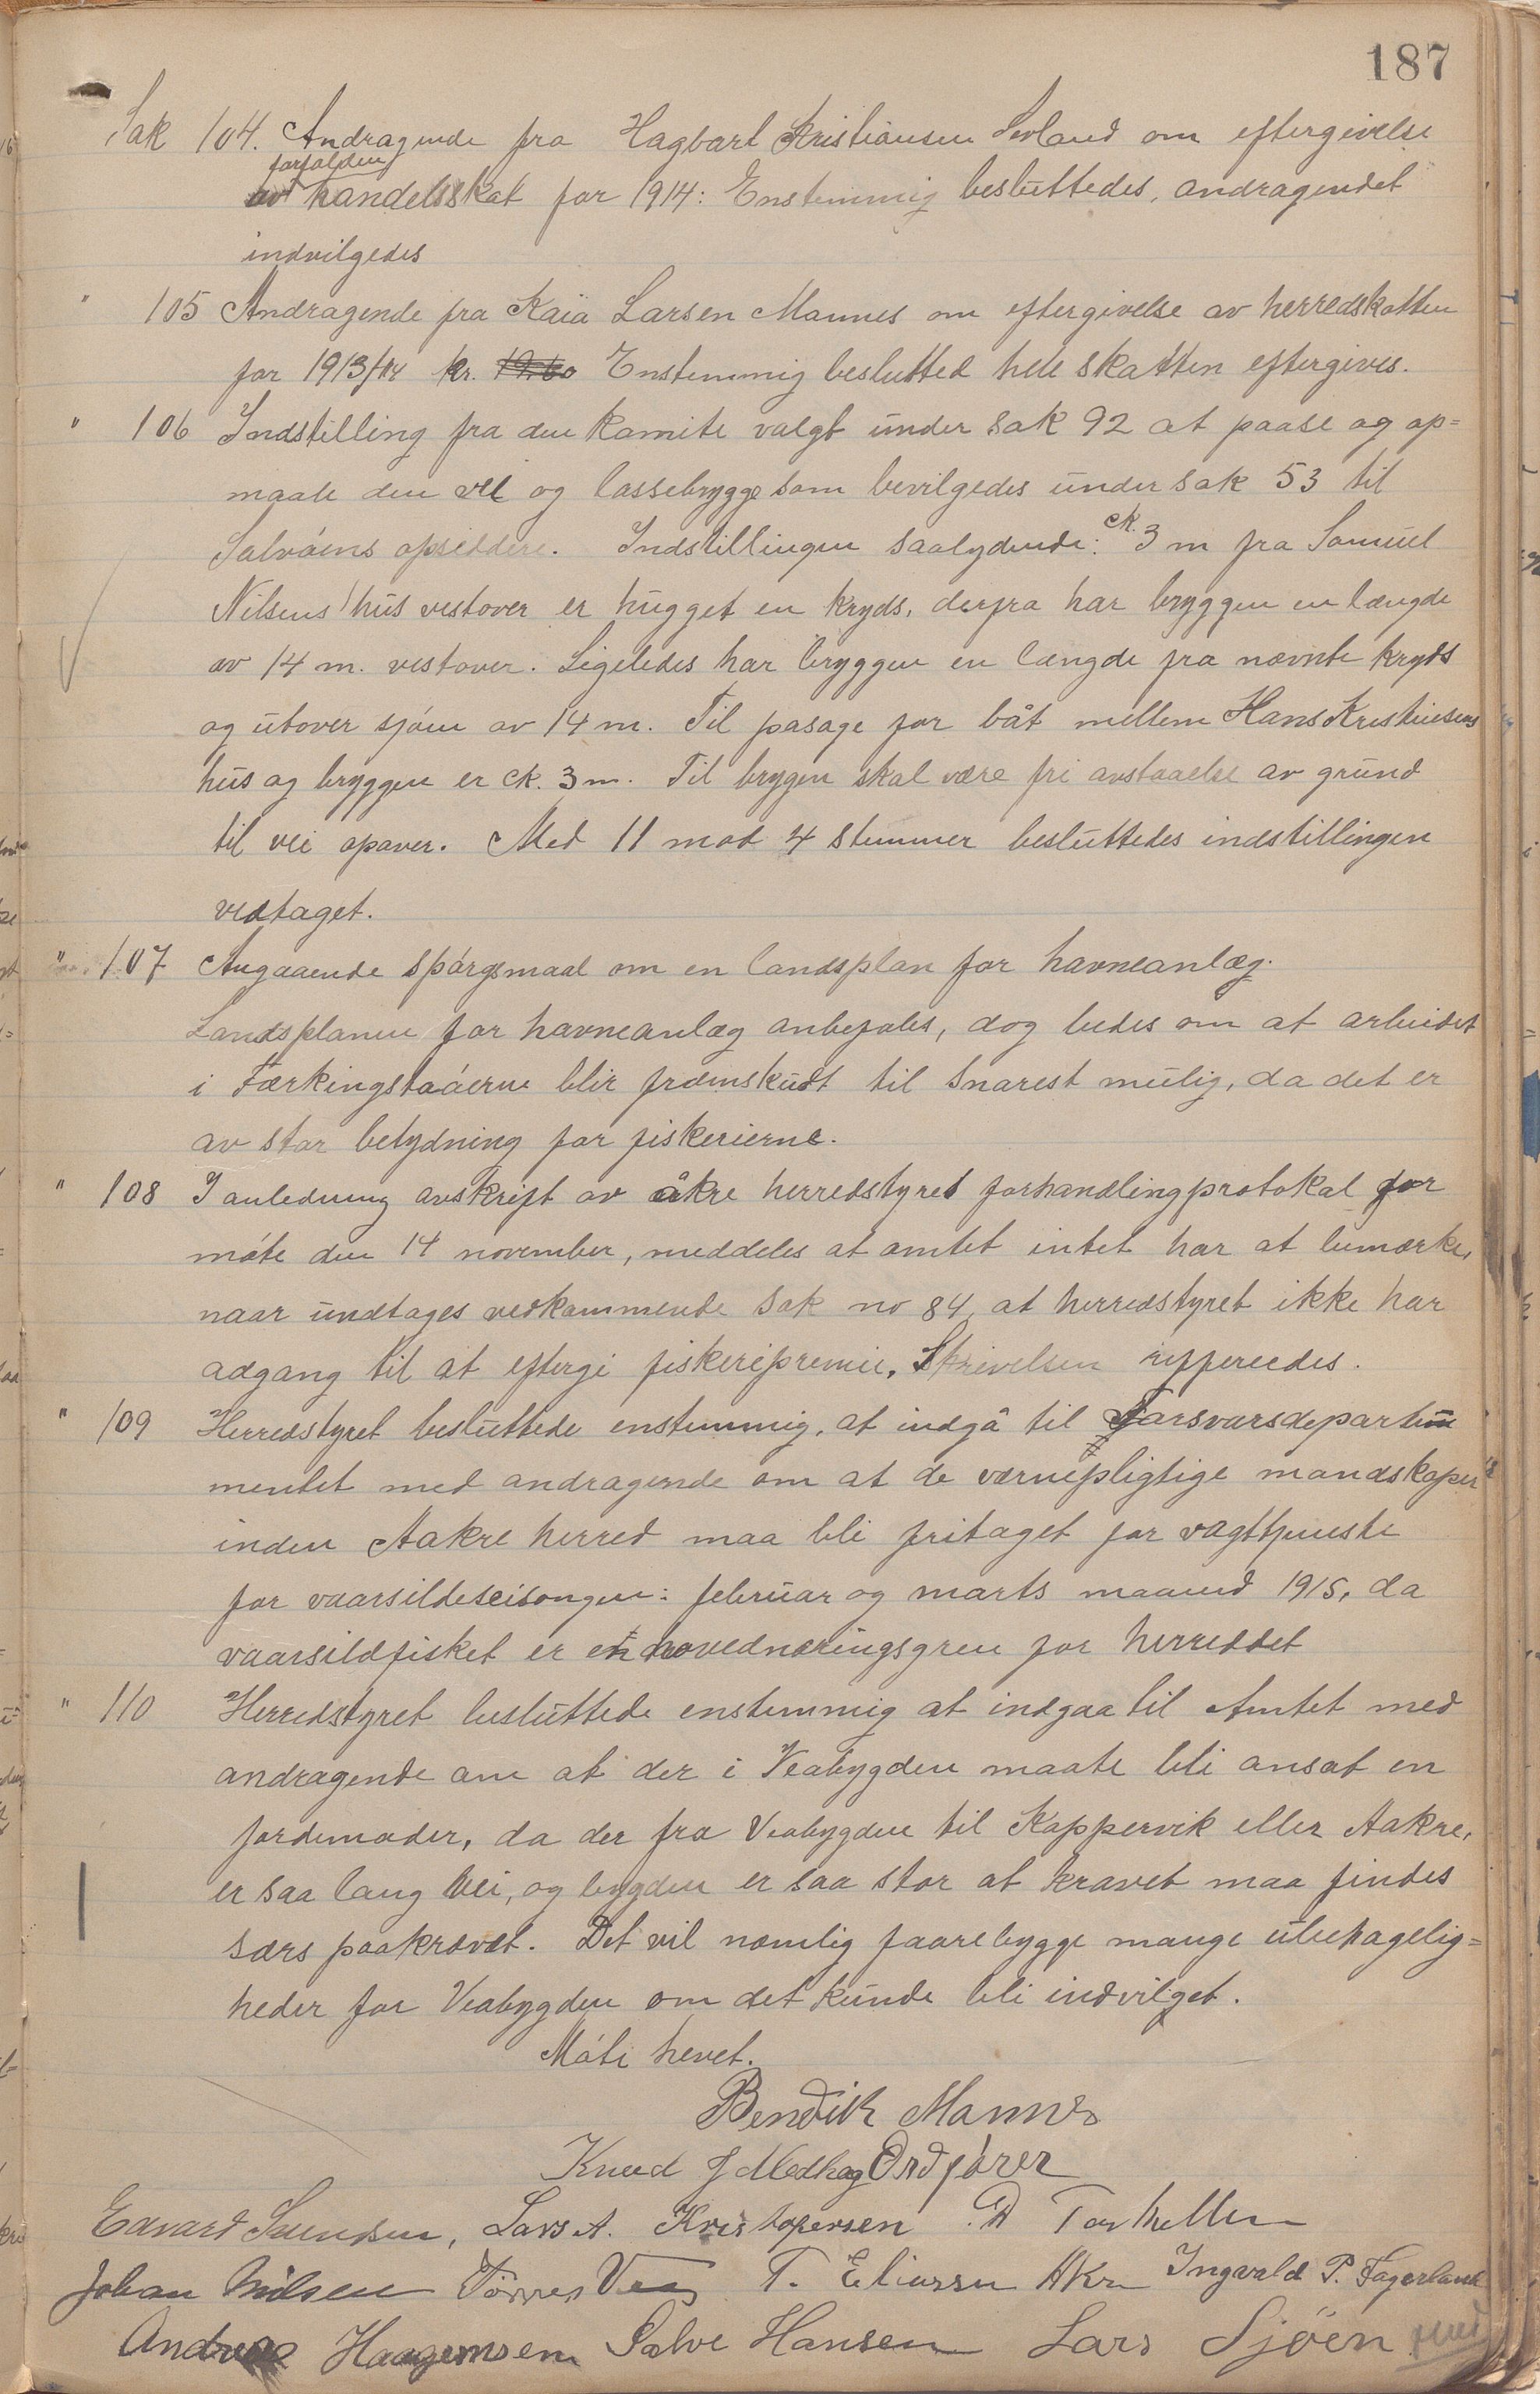 187
Sak 104. Andragende fra Hagbart Kristiansen Sevland om eftergivelse
forfalden
av handelsskat for 1914: Enstemmig besluttedes, andragendet
indvilgedes
" 105 Andragende fra Kaia Larsen Mannes om eftergivelse av herredskatten
for 1913/14 kr. 19.60 Enstemmig beslutted hele skatten eftergives.
" 106 Indstilling fra den komite valgt under sak 92 at paase og op=
maale den vei og lassebrygge som bevilgedes under sak 53 til
Salvöens opsiddere. Indstillingen saalydende: ck. 3 m fra Samuel
Nilsens hus vestover er hugget en kryds, derfra har bryggen en længde
av 14 m. vestover. Ligeledes har bryggen en længde fra nævnte kryds
og utover sjöen av 14 m. Til pasage for båt mellem Hans Kristensens
hus og bryggen er ck. 3 m. Til brygen skal være fri avstaaelse av grund
til vei opover. Med 11 mod 4 stemmer besluttedes indstillingen
vedtaget.
" 107 Angaaende spörgsmaal om en landsplan for havneanlæg.
Landsplanen for havneanlæg anbefales, dog bedes om at arbeidet
i Færkingstaöerne blir fræmskudt til snarest mulig, da det er
av stor betydning for fiskerierne.
" 108 I anledning avskrift av åkre herredstyret forhandlingprotokal for
möte den 14 november, meddeles at amtet intet har at bemærke,
naar undtages vedkommende sak no 84, at herredstyret ikke har
adgang til at eftergi fiskeripremie. Skrivelsen refereredes.
" 109 Herredstyret besluttede enstemmig, at indgå til Forsvarsdeparte
mentet med andragende om at de værnepligtige mandskaper
inden Aakre herred maa bli fritaget for vagttjeneste
for vaarsildeseisongen: februar og marts maaned 1915, da
vaarsildfisket er en hovednæringsgren for herreddet
" 110 Herredstyret besluttede enstemmig at indgaa til Amtet med
andragende om at der i Veabygden maate bli ansat en
jordemoder, da der fra Veabygden til Koppervik eller Aakre,
er saa lang vei, og bygden er saa stor at kravet maa findes
særs paakrævet. Det vil nemlig faarebygge mange ubehagelig=
heder for Veabygden om det kunde bli indvilget.
Möte hevet.
Bendik Mannes
Knud J Medhog Ordförer
Edvard Svendsen, Lars A. Kristofersen D Torkellsen
Johan Nilsen Törres Vea T. Eliassen Akre Ingvald P. Fagerland
Andreas Haagensen Salve Hansen Lars Sjöen